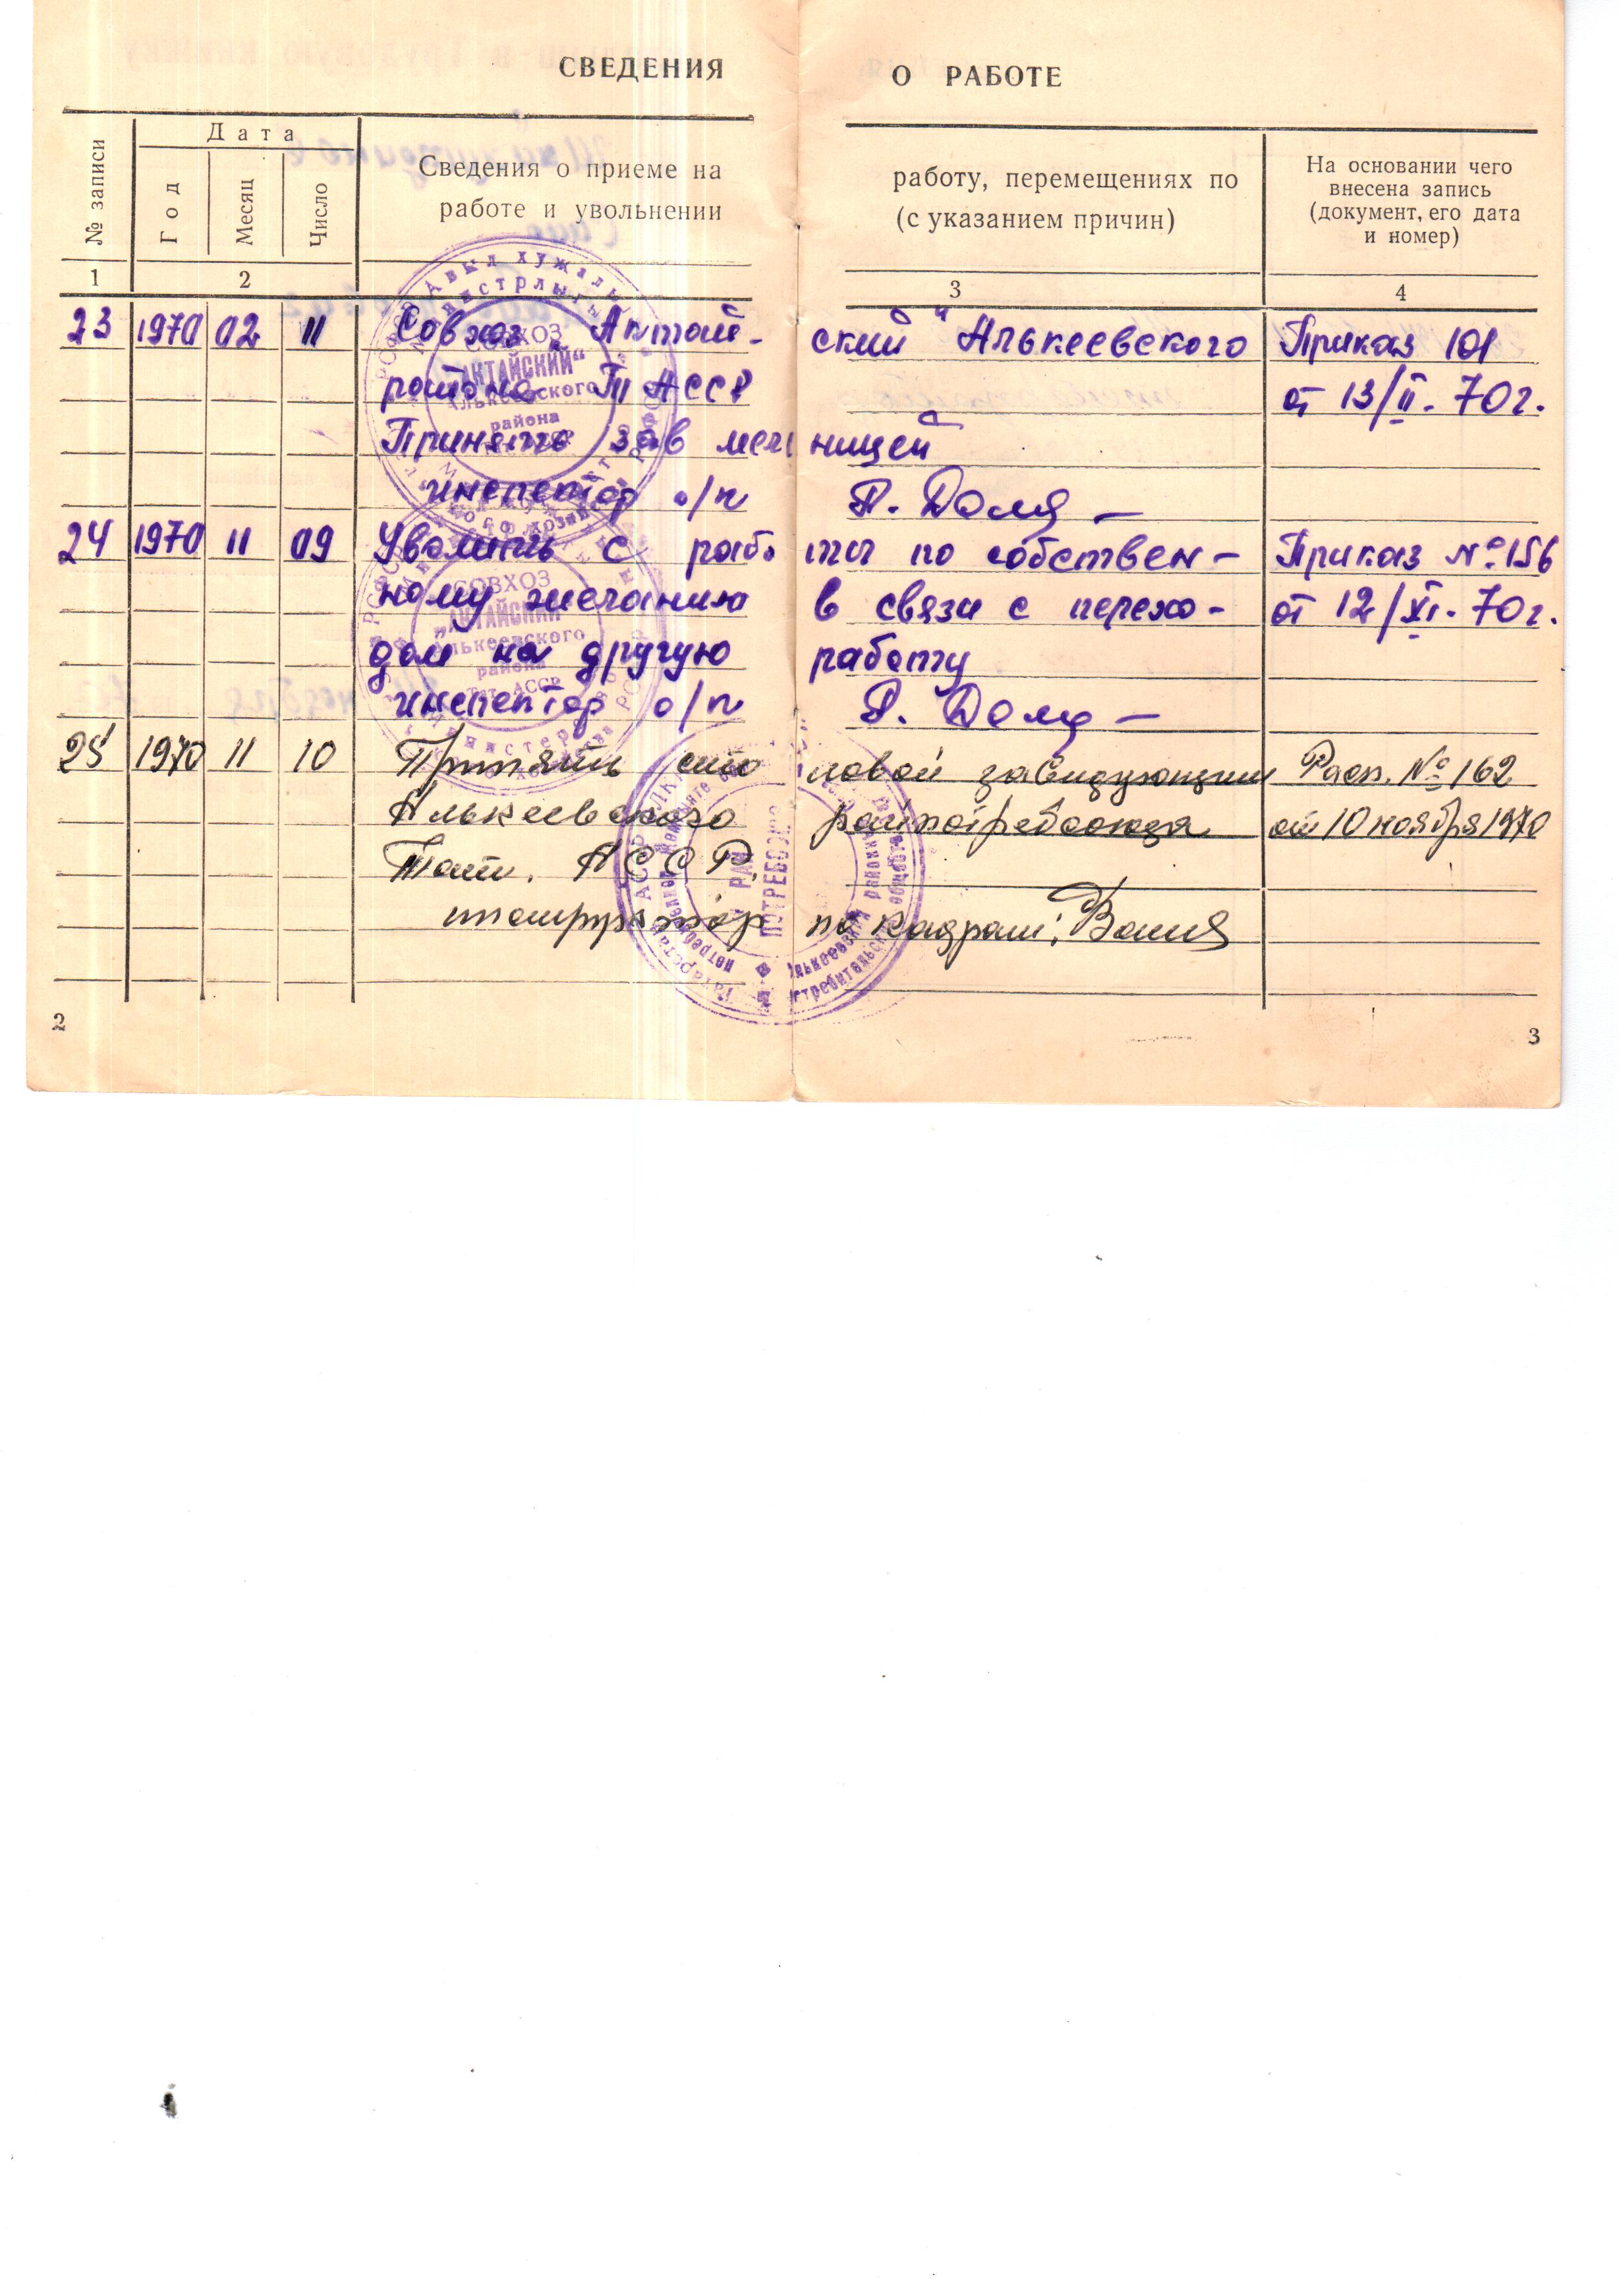 СВЕДЕНИЯ О РАБОТЕ
№ записи
Дата
Год
Месяц
Число
Сведения о приеме на работу, перемещениях по
работе и увольнении (с указанием причин)
На основании чего
внесена запись
(документ, его дата
и номер)
1 2 3 4
23 1970 02 11 Совхоз „Актай- ский" Алькеевского Приказ 101
района ТАССР от 13/II. 70г.
Принять зав мель ницей
инспектор о/к
24 1970 11 09 Уволить с рабо ты по собствен- Приказ №156
ному желанию в связи с перехо- от 12/XI. 70г.
дом на другую работу
инспектор о/к
25 1970 11 10 Принять сто ловой заведующим Расп. №162
Алькеевского райпотребсоюза от 10 ноября 1970
Тат. АССР.
инструктор по кадрам:
СОВХОЗ
„АКТАЙСКИЙ"
Алькеевского
района
СОВХОЗ
„АКТАЙСКИЙ"
Алькеевского
района
Тат. АССР
РАЙ
ПОТРЕБСОЮЗ
2
3